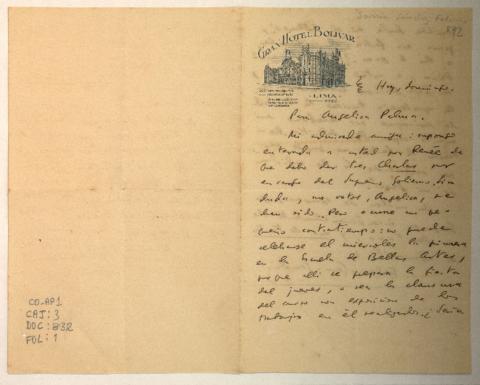 GRAN HOTEL BOLIVAR
LIMA
Hoy, domingo.
Para Angélica Palma.
Mi admirada amiga: supongo
enterada a usted por Renée de
que debo dar tres Charlas por
encargo del Supremo Gobierno. Sin
duda, no votos, Angélica, me
han oido. Pero ocurre un pe-
queño contratiempo: no puede
celebrarse el miércoles la primera
en la Escuela de Bellas Artes,
porque alli se prepara la fiesta
del jueves, o sea la clausura
del curso con exposición de los
trabajos en él realizados. ¿Sería
CO-AP1
CAJ: 3
DOC: 832
FOL: 1